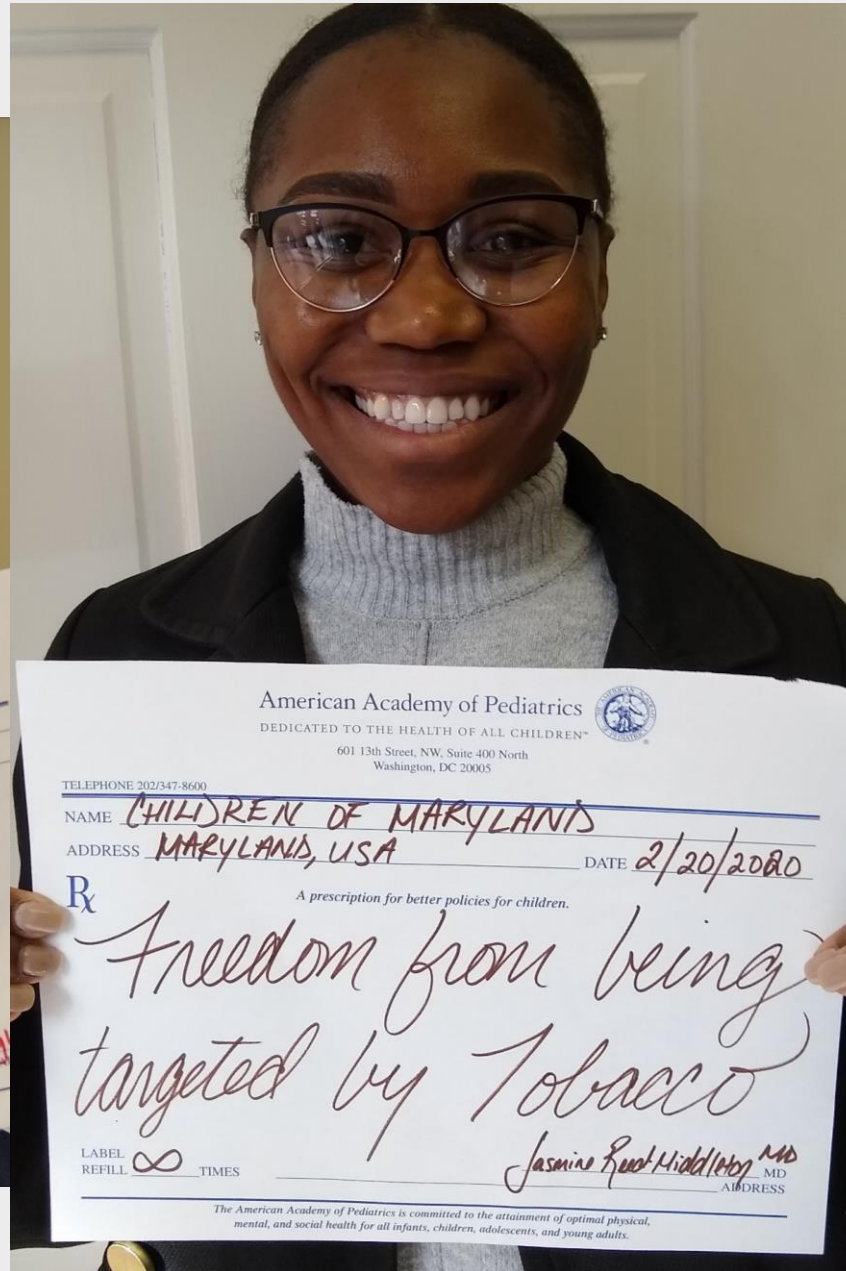 American Academy of Pediatrics
DEDICATED TO THE HEALTH OF ALL CHILDREN™
601 13th Street, NW, Suite 400 North
Washington, DC 20005
TELEPHONE 202/347-8600
NAME CHILDREN OF MARYLAND
ADDRESS MARYLAND, USA DATE 2/20/2020
Rx
A prescription for better policies for children.
Freedom from being
targeted by Tobacco
LABEL
REFILL ∞ TIMES
Jasmine Middleton MD MD
ADDRESS
The American Academy of Pediatrics is committed to the attainment of optimal physical,
mental, and social health for all infants, children, adolescents, and young adults.